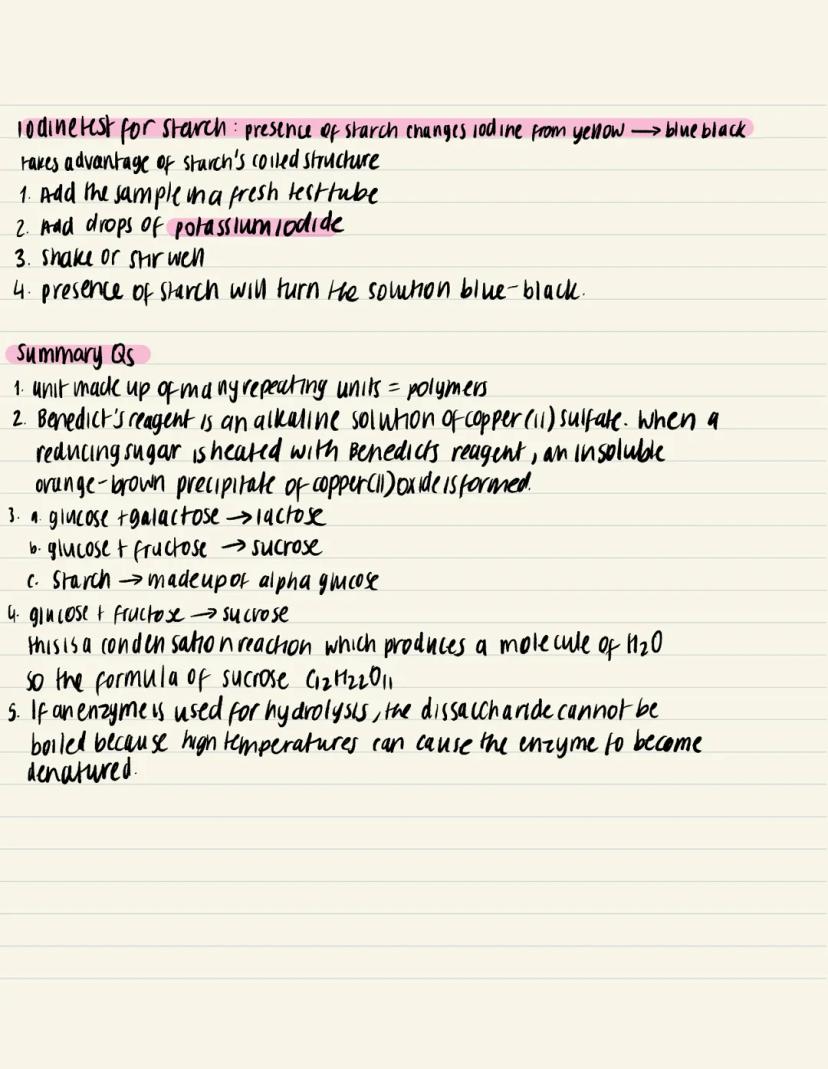 Iodine test for starch: presence of starch changes iodine from yellow → blue black
takes advantage of starch's coiled structure
1. Add the sample in a fresh test tube
2. Add drops of potassium iodide
3. shake or stir well
4. presence of starch will turn the solution blue-black.
Summary Qs
1. unit made up of many repeating units = polymers
2. Benedict's reagent is an alkaline solution of copper (II) sulfate. When a
reducing sugar is heated with Benedicts reagent, an insoluble
orange-brown precipitate of copper(II) oxide is formed.
3. a. glucose + galactose → lactose
b. glucose + fructose → sucrose
c. Starch → made up of alpha glucose
4. glucose + fructose → sucrose
this is a condensation reaction which produces a molecule of H₂O
so the formula of sucrose C₁₂H₂₂O₁₁
5. If an enzyme is used for hydrolysis, the dissaccharide cannot be
boiled because high temperatures can cause the enzyme to become
denatured.